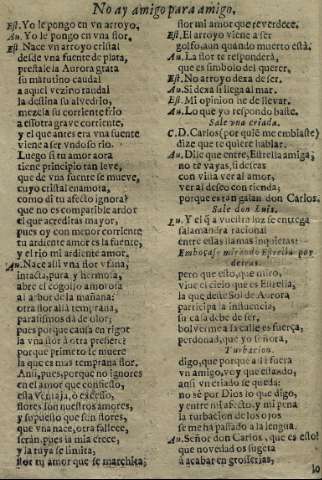 No ay amigo para amigo.
Est. Yo le pongo en vn arroyo.
Au. Yo le pongo en vna flor.
Est. Nace vn arroyo cristal
desde vna fuente de plata,
prestale la Aurora grata
su matutino caudal
a aquel vezino raudal
la destina su alvedrio,
mezcla su corriente frio
a essotra grave corriente,
y el que antes era vna fuente
viene a ser vndoso rio.
Luego si tu amor aora
tiene principio tan leve,
que de vna fuente se mueve,
cuyo cristal enamora,
como di tu afecto ignora
que no es comparible ardor
el que acreditas mayor,
pues oy con menor corriente
tu ardiente amor es la fuente,
y el rio mi ardiente amor.
Au. Nace assi vna flor vfana,
intacta, pura, y hermosa,
abre el cogollo amorosa
al albor de la mañana:
otra flor alli temprana,
parasismos dà de olor;
pues porque causa en rigor
la vna flor à otra prefiere?
porque primero le muere
la que es mas temprana flor.
Ansi, pues, porque no ignores
en el amor que confiesso,
esta ventaja, ò excesso,
flores son nuestros amores,
y supuesto que son flores,
que vna nace, otra fallece,
serán, pues la mia crece
y la tuya se limita,
flor tu amor que se marchita;
flor mi amor que reverdece.
Est. El arroyo viene a ser
golfo, aun quando muerto està.
Au. La flor te responderà,
que es simbolo del querer.
Est. No arroyo dexa de ser.
Au. Si dexa si llega al mar.
Est. Mi opinion he de llevar.
Au. Lo que yo respondo baste.
Sale vna criada.
C. D. Carlos (por quiē me embiaste)
dize que te quiere hablar.
Au. Dile que entre, Estrella amiga;
no te vayas, si deseas
con villa ver al amor,
ver al deseo con rienda;
porque est galan don Carlos.
Sale don Luis.
Lu. Y el q̃ a vuestra luz se entrega
salamandra racional
entre ellas llamas inquietas:
Embozase mirando Estrella por
detras.
pero que esto, que miro,
vive el cielo que es Estrella,
la que deste Sol de Aurora
participa la influencia,
su casa debe de ser,
bolverme a la calle es fuerça,
perdonad, que yo señora
Turbarlos.
digo, que porque a la fuera
vn amigo, voy que estando,
ansi vn criado se queda:
no sè por Dios lo que digo,
y entre mi afecto, y mi pena
la turbacion de los ojos
se me ha passado a la lengua.
Au. Señor don Carlos, que es esto?
que novedad os sugeta
à acabar en groserias,
lo